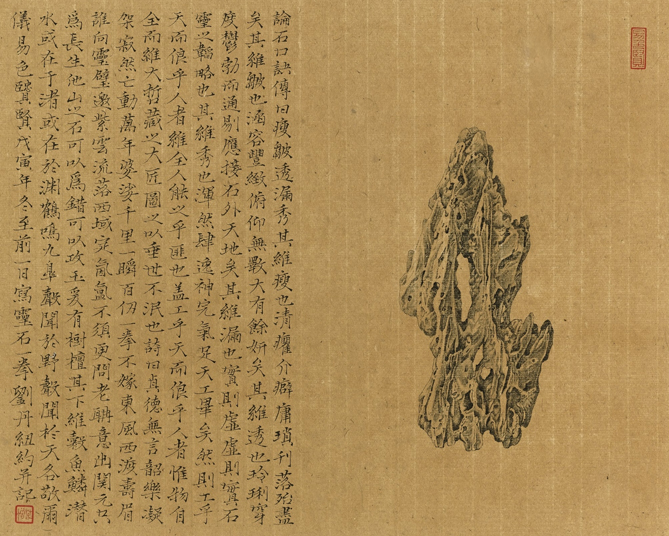 論石口訣傳曰瘦皺透漏秀其維瘦也清癯介癖庸瑣刊落殆盡
矣其維皺也涵容豐緻俯仰無斁大有餘妍矣其維透也玲琍穿
度鬱勃而通剔應接石外天地矣其維漏也實則虛虛則實石
靈之韜略也其維秀也渾然肆逸神完氣足天工畢矣然則工乎
天而俍乎人者維全人能之乎匪也蓋工乎天而俍乎人者惟物自
全而維大哲藏之大匠圖之以垂世不泯也詩曰貞德無言韶樂凝
架寂然亡動萬年婆娑千里一瞬百仞一拳不嫁東風西渡壽眉
誰向靈璧邀紫雲流落西域定氤氳不須更問老聃意出關元只
爲長生他山之石可以爲錯可以攻玉爰有樹檀其下維穀魚鱗潛
水或在于渚或在於淵鶴鳴九皋聲聞於野聲聞於天各敬爾
儀易色賢賢戊寅年冬至前一日寫靈石一拳劉丹紐約并記